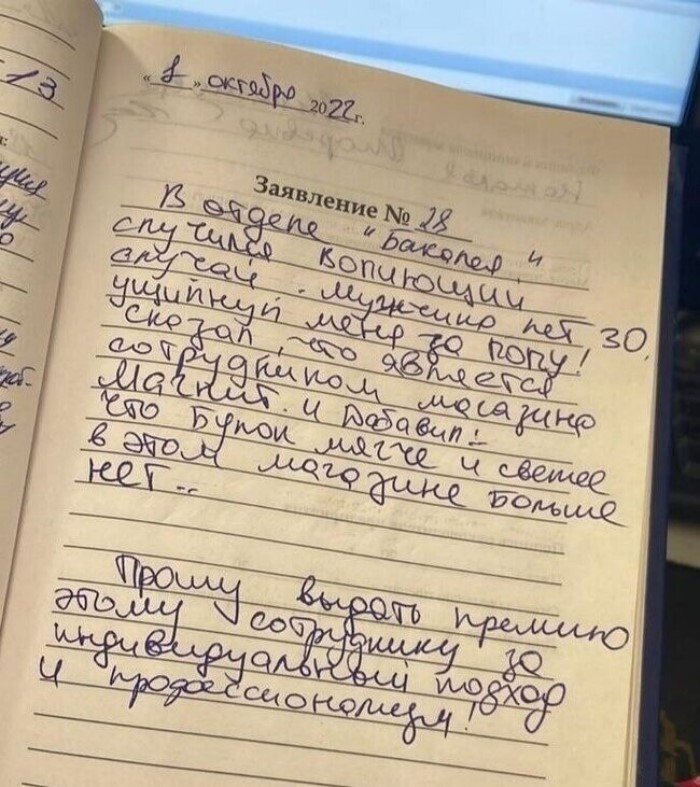 "1" октября 2022 г.
Заявление № 28
В отделе "Бакалея"
случился вопиющий
случай. Мужчина лет 30,
ущипнул меня за попу!
сказал, что является
сотрудником магазина
Магнит. И добавил:
что булок мягче и свежее
в этом магазине больше
нет..
Прошу выдать премию
этому сотруднику за
индивидуальный подход
и профессионализм!
13